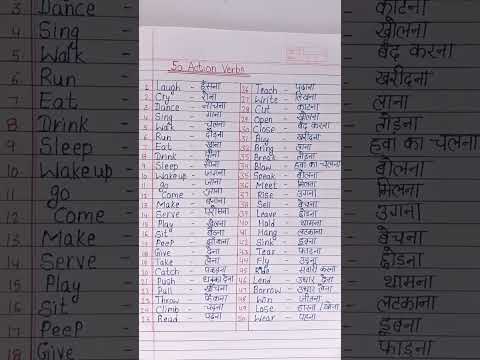 3 Dance -
4 Sing -
5 Walk -
6 Run -
7 Eat -
8 Drink -
9 Sleep -
10 Wakeup -
11 go -
12 Come -
13 Make -
14 Serve -
15 Play -
16 Sit -
17 Peep -
18 Give -
50 Action Verbs
1 Laugh - हँसना
2 Cry - रोना
3 Dance - नाचना
4 Sing - गाना
5 Walk - चलना
6 Run - दौड़ना
7 Eat - खाना
8 Drink - पीना
9 Sleep - सोना
10 Wakeup - जागना
11 go - जाना
12 Come - आना
13 Make - बनाना
14 Serve - परोसना
15 Play - खेलना
16 Sit - बैठना
17 Peep - झाँकना
18 Give - देना
19 Take - लेना
20 Catch - पकड़ना
21 Push - धक्का देना
22 Pull - खींचना
23 Throw - फेंकना
24 Climb - चढ़ना
25 Read - पढ़ना
26 Teach - पढ़ाना
27 Write - लिखना
28 Cut - काटना
29 Open - खोलना
30 Close - बंद करना
31 Buy - खरीदना
32 Bring - लाना
33 Break - तोड़ना
34 Blow - हवा का चलना
35 Speak - बोलना
36 Meet - मिलना
37 Rise - उगना
38 Sell - बेचना
39 Leave - छोड़ना
40 Hold - थामना
41 Hang - लटकाना
42 Sink - डूबना
43 Tear - फाड़ना
44 Fly - उड़ना
45 Ride - सवारी करना
46 Lend - उधार देना
47 Borrow - उधार लेना
48 Win - जीतना
49 Lose - हारना
50 Wear - पहनना
काटना
खोलना
बंद करना
खरीदना
लाना
तोड़ना
हवा का चलना
बोलना
मिलना
उगना
बेचना
छोड़ना
थामना
लटकाना
डूबना
फाड़ना